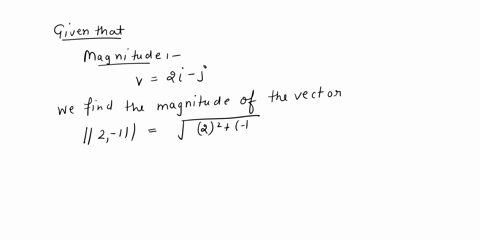 Given that
Magnitude:-
v = 2i - j
We find the magnitude of the vector
||2,-1|| = √(2)²+(-1